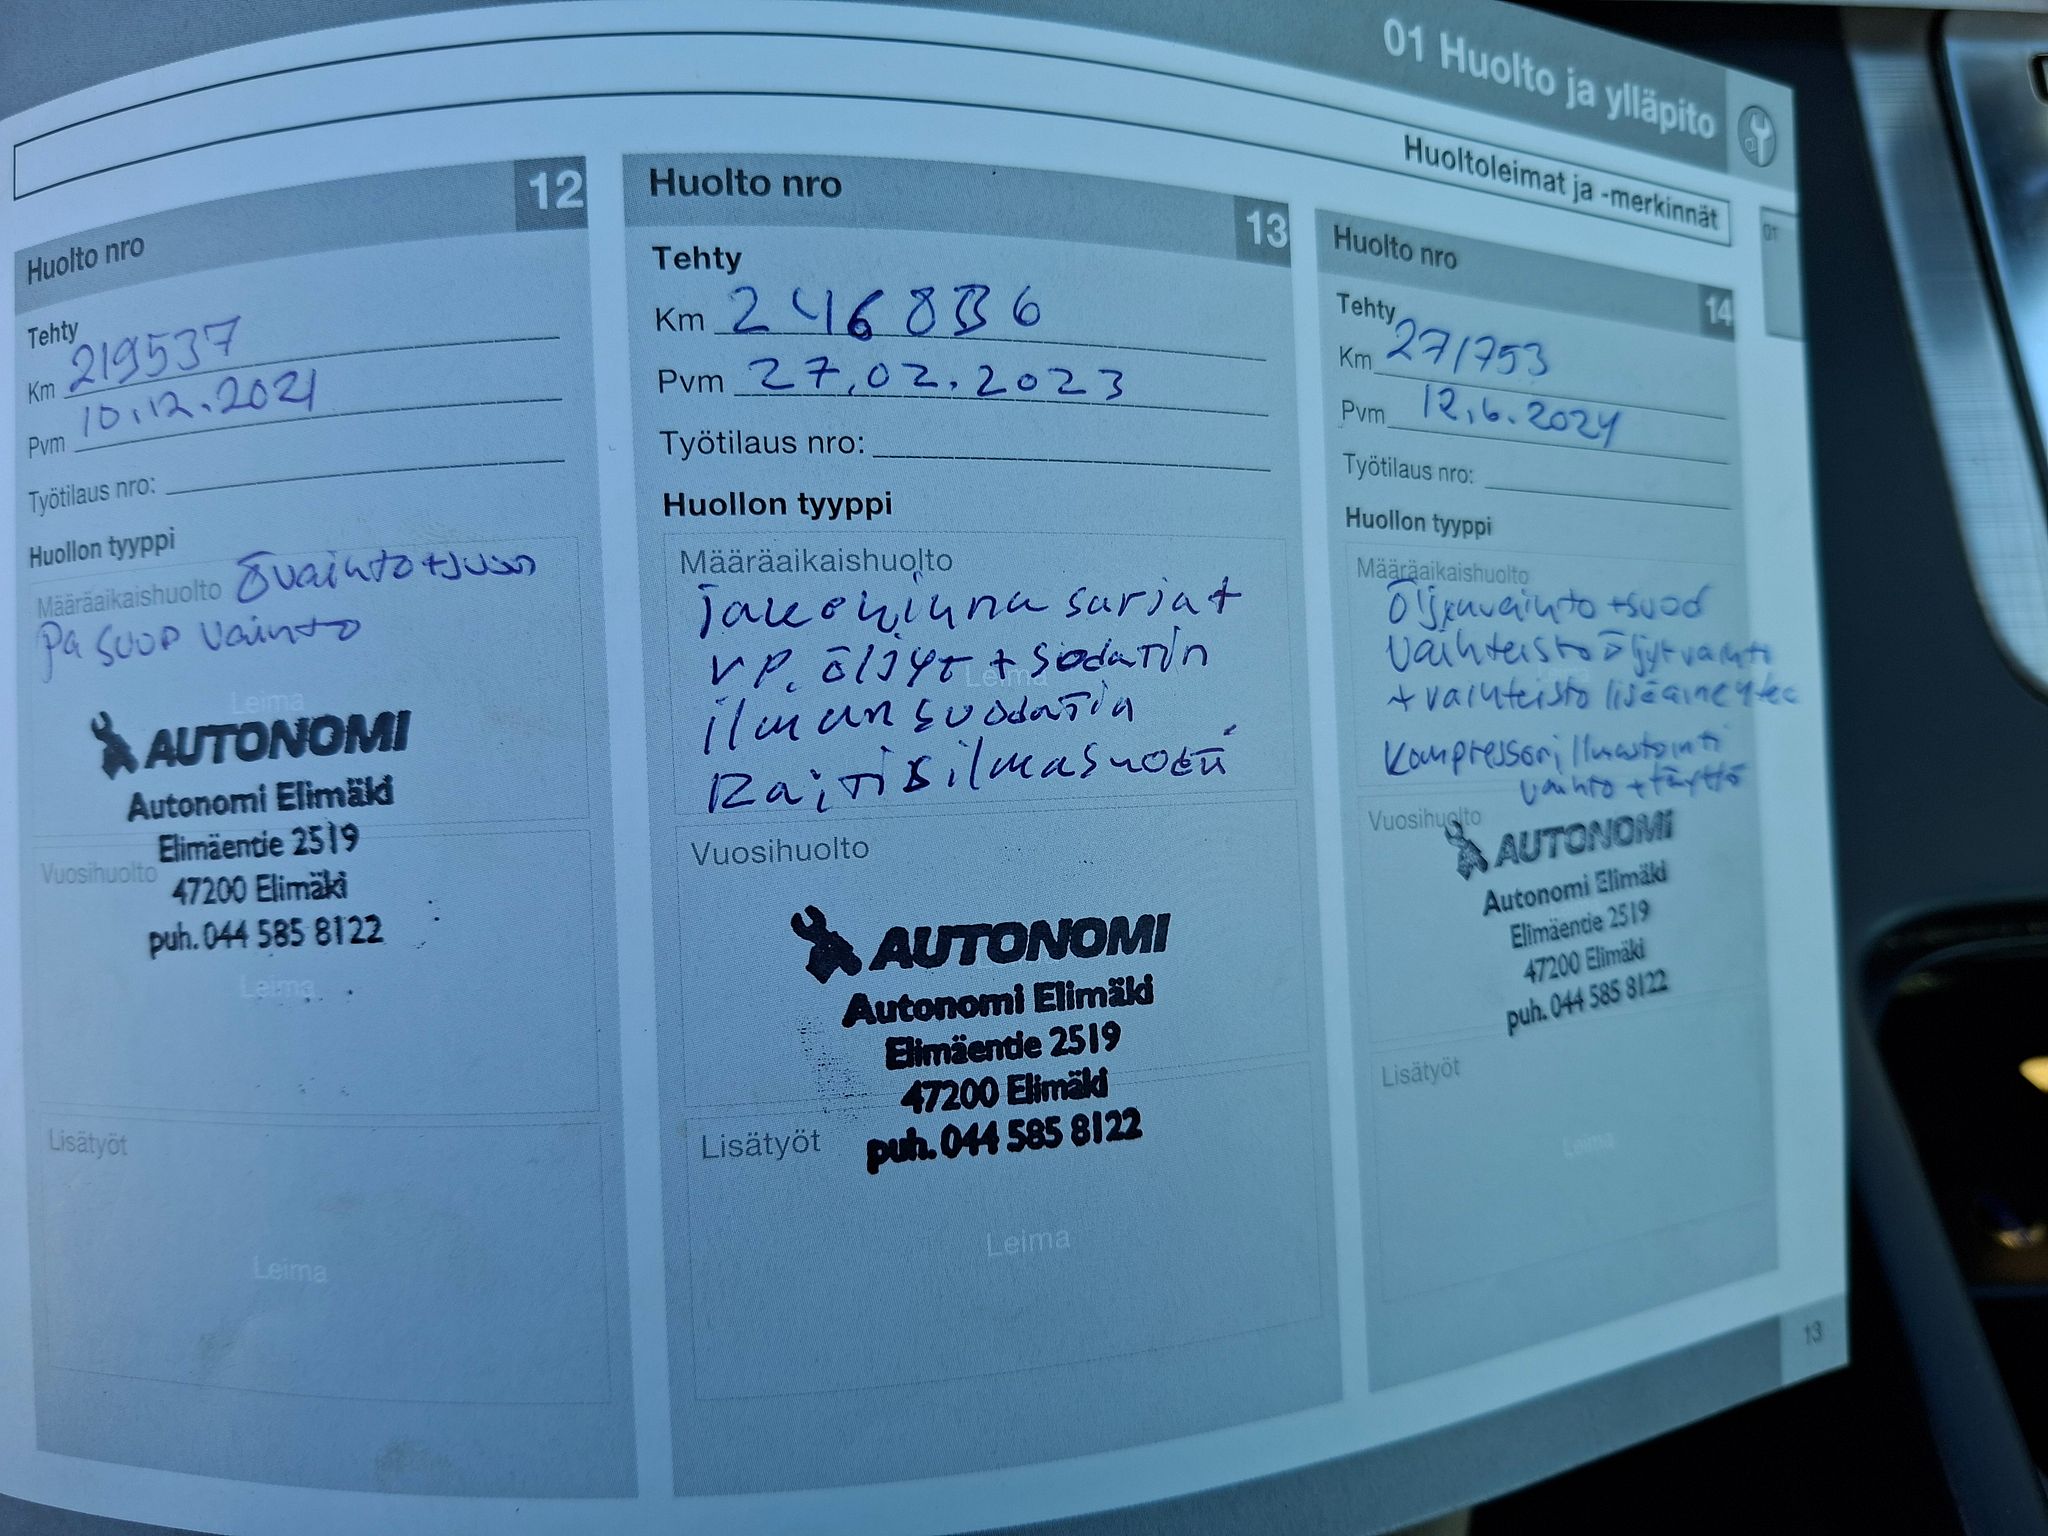 01 Huolto ja ylläpito
Huoltoleimat ja -merkinnät
01
Huolto nro 12
Tehty
Km 219537
Pvm 10.12.2021
Työtilaus nro:
Huollon tyyppi
Määräaikaishuolto Övaihto+suod
Pa suod vainto
Leima
AUTONOMI
Autonomi Elimäki
Elimäentie 2519
Vuosihuolto
47200 Elimäki
puh. 044 585 8122
Leima
Lisätyöt
Leima
Huolto nro 13
Tehty
Km 246836
Pvm 27.02.2023
Työtilaus nro:
Huollon tyyppi
Määräaikaishuolto
jakohihna sarja +
VP. öljyt + sodatin
Leima
ilman suodatin
Raitisilmasuod
Vuosihuolto
AUTONOMI
Autonomi Elimäki
Elimäentie 2519
47200 Elimäki
Lisätyöt
puh. 044 585 8122
Leima
Huolto nro 14
Tehty
Km 271753
Pvm 12.6.2024
Työtilaus nro:
Huollon tyyppi
Määräaikaishuolto
Öljynvaihto +suod
Vaihteisto öljytvaihto
+ vaihteisto lisäaine
Kompressori Ilmastointi
vaihto + täyttö
Vuosihuolto
AUTONOMI
Autonomi Elimäki
Elimäentie 2519
47200 Elimäki
puh. 044 585 8122
Lisätyöt
Leima
13